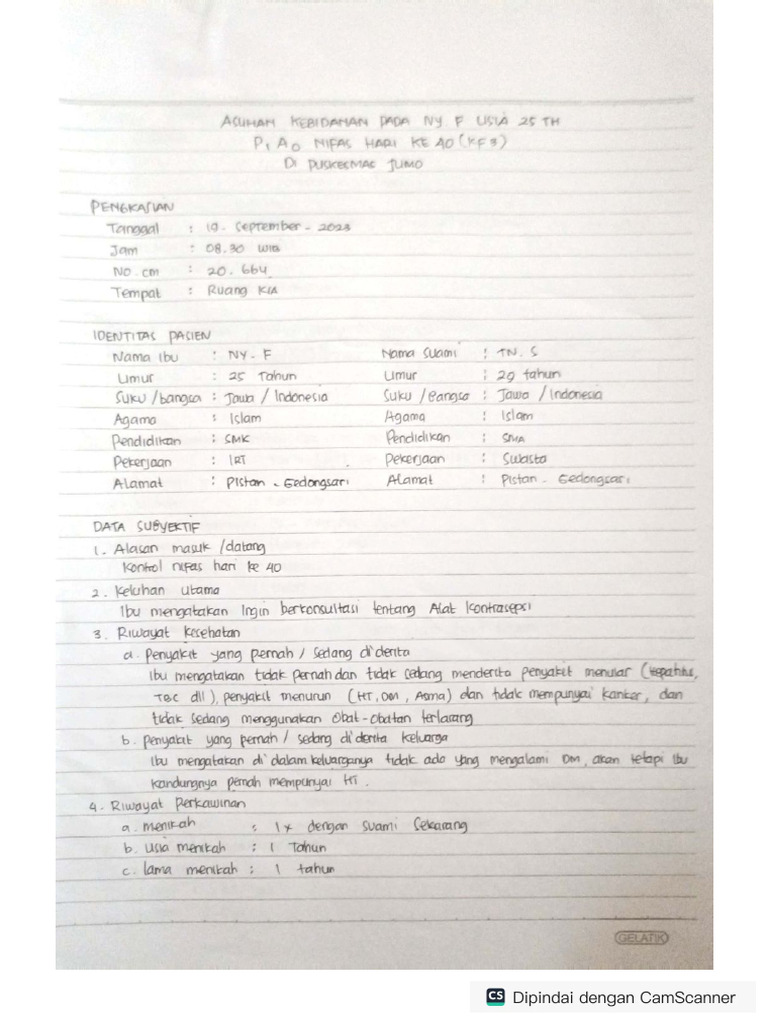 ASUHAN KEBIDANAN PADA NY F USIA 25 TH
P1 A0 NIFAS HARI KE 40 (KF 3)
DI PUSKESMAS JUMO
PENGKAJIAN
Tanggal : 19 - September - 2023
Jam : 08.30 WIB
NO. CM : 20.664
Tempat : Ruang KIA
IDENTITAS PASIEN
Nama Ibu : NY. F Nama Suami : TN. S
Umur : 25 Tahun Umur : 29 tahun
Suku /bangsa : Jawa / Indonesia Suku /Bangsa : Jawa / Indonesia
Agama : Islam Agama : Islam
Pendidikan : SMK Pendidikan : SMA
Pekerjaan : IRT Pekerjaan : Swasta
Alamat : Pistan - Gedongsari Alamat : Pistan - Gedongsari
DATA SUBYEKTIF
1. Alasan masuk /datang
Kontrol nifas hari ke 40
2. Keluhan utama
Ibu mengatakan Ingin berkonsultasi tentang Alat Kontrasepsi
3. Riwayat Kesehatan
a. Penyakit yang pernah / sedang di derita
Ibu mengatakan tidak pernah dan tidak sedang menderita penyakit menular (Hepatitis,
TBC dll), penyakit menurun (HT, DM, Asma) dan tidak mempunyai kanker, dan
tidak sedang menggunakan Obat-Obatan terlarang
b. Penyakit yang pernah / sedang di derita Keluarga
Ibu mengatakan di dalam keluarganya tidak ada yang mengalami DM, akan tetapi Ibu
kandungnya pernah mempunyai HT.
4. Riwayat Perkawinan
a. menikah : 1x dengan suami Sekarang
b. usia menikah : 1 Tahun
c. lama menikah : 1 tahun
GELATIK
CS Dipindai dengan CamScanner